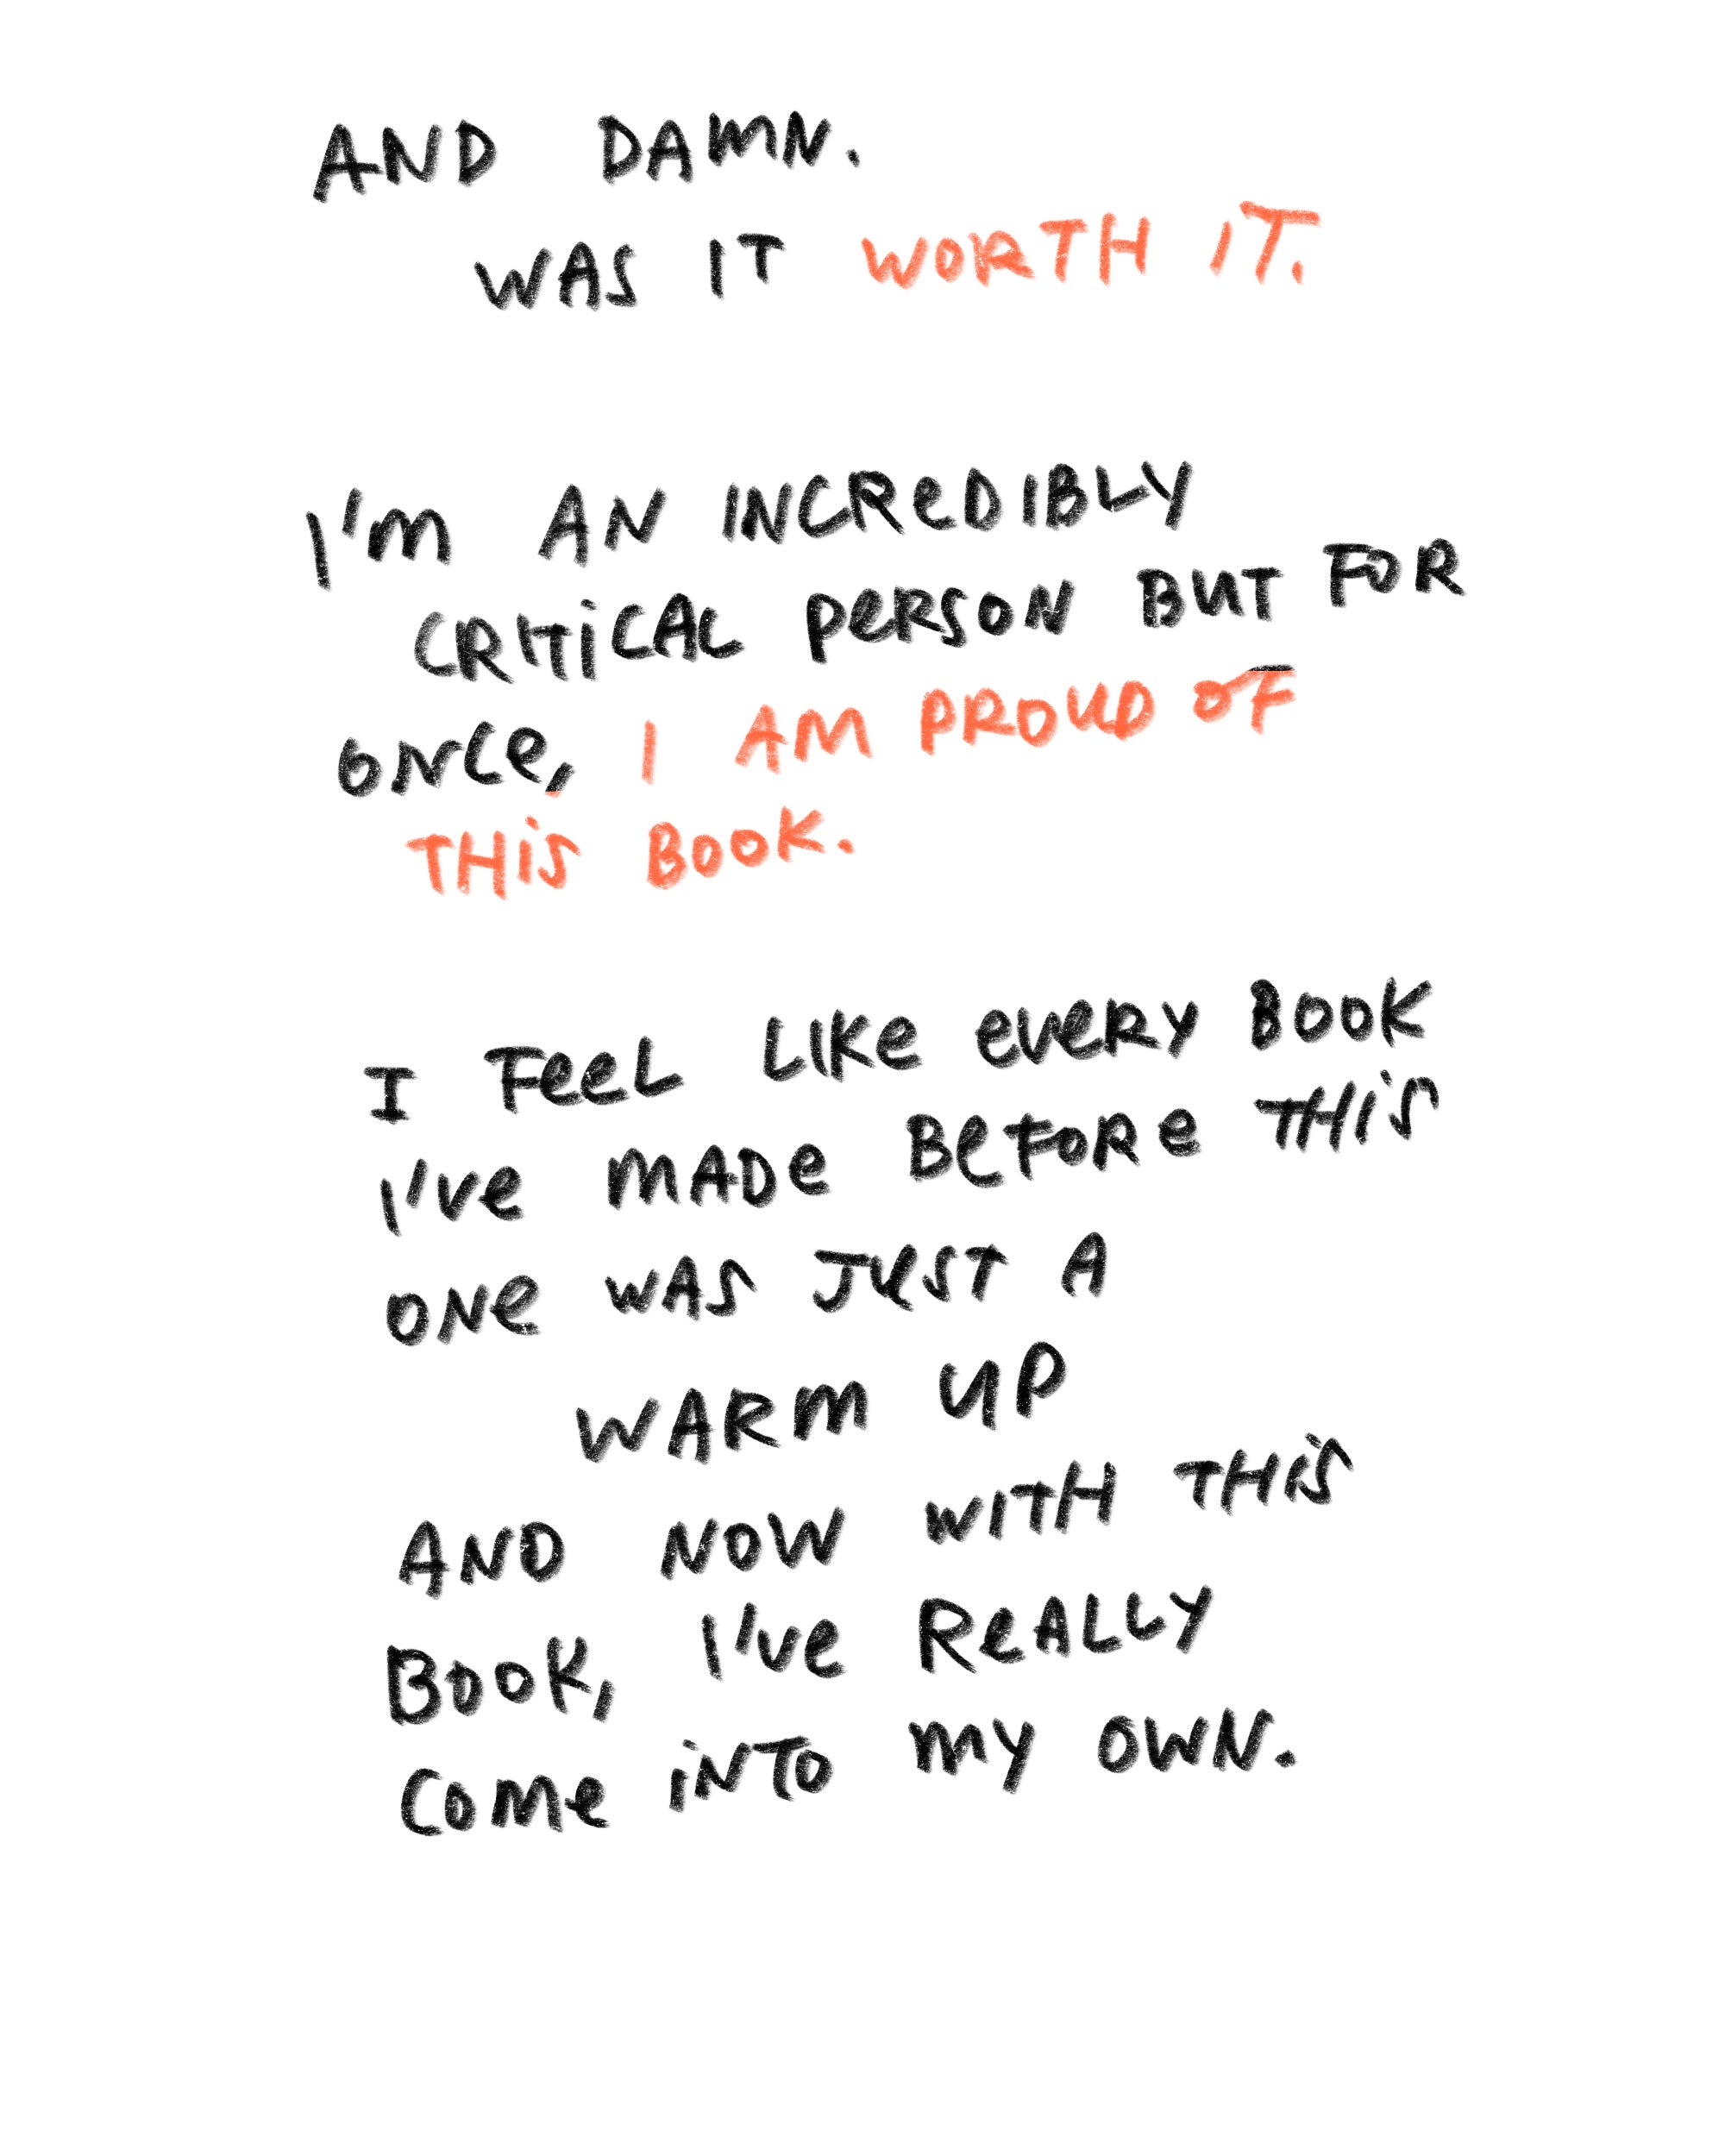 AND DAMN.
WAS IT WORTH IT.
I'm AN INCREDIBLY
CRITICAL PERSON BUT FOR
ONCE, I AM PROUD OF
THIS BOOK.
I FEEL LIKE EVERY BOOK
I'VE MADE BEFORE THIS
ONE WAS JUST A
WARM UP
AND NOW WITH THIS
BOOK, I'VE REALLY
COME INTO MY OWN.